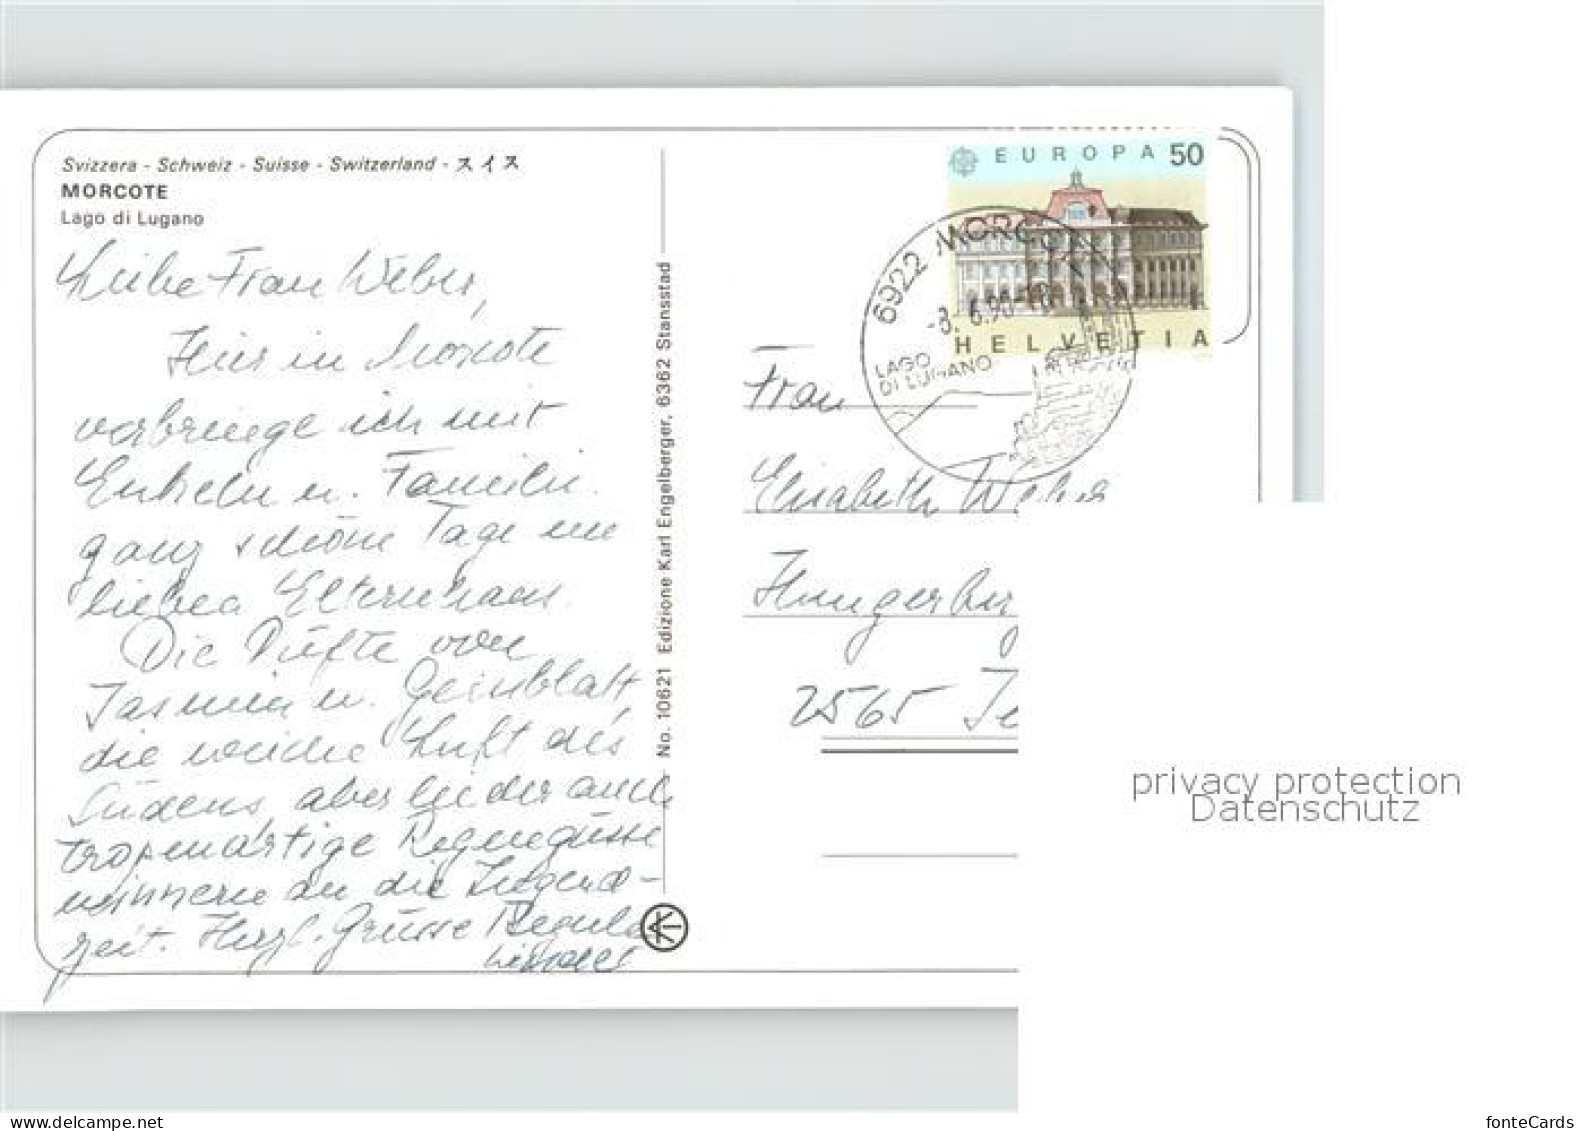 Svizzera - Schweiz - Suisse - Switzerland - スイス
MORCOTE
Lago di Lugano
Liebe Frau Weber,
Hier in Morcote
verbringe ich mit
Enkeln u. Familie
ganz schöne Tage im
lieben Elternhaus.
Die Düfte von
Jasmin u. Geissblatt,
die weiche Luft des
Südens, aber leider auch
tropenartige Regengüsse
erinnern an die Jugend-
zeit. Herzl. Grüsse Regula
No. 10621 Edizione Karl Engelberger, 6362 Stansstad
EUROPA 50
HELVETIA
6922 MORCOTE
-8. 6.90-
LAGO
DI LUGANO
Frau
Elisabeth Weber
2565 Je
privacy protection
Datenschutz
https://www.delcampe.net
fonteCards